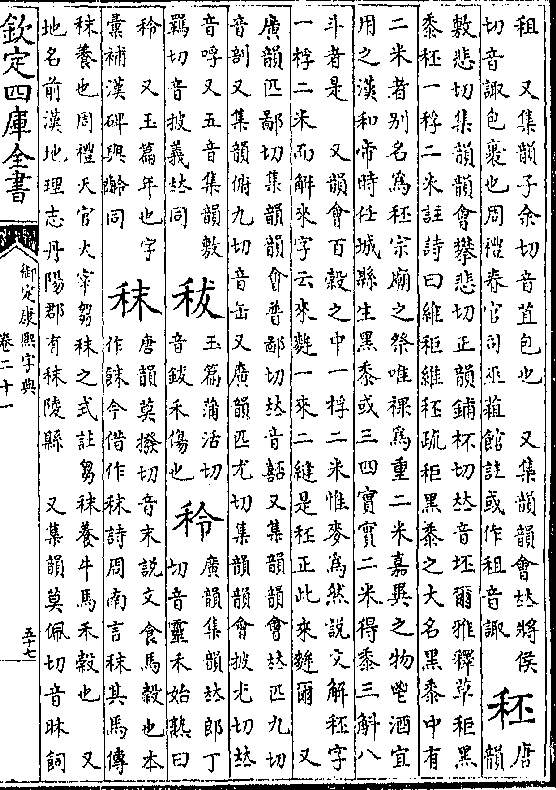 租　又集韻子余切音苴包也　又集韻韻會𠀤將侯
切音諏包裹也周禮春官司巫蒩館註或作租音諏
秠
唐
韻
敷悲切集韻韻會攀悲切正韻鋪杯切𠀤音坯爾雅釋草秬黑
黍秠一稃二米註詩曰維秬維秠疏秬黑黍之大名黑黍中有
二米者别名為秠宗廟之祭唯祼為重二米嘉異之物鬯酒宜
用之漢和帝時任城縣生黑黍或三四實實二米得黍三斛八
斗者是　又韻會百穀之中一稃二米惟麥為然說文解秠字
一稃二米而解來字云來麰一來二縫是秠正此來麰爾　又
廣韻匹鄙切集韻韻會普鄙切𠀤音嚭又集韻韻會𠀤匹九切
音剖又集韻俯九切音缶又廣韻匹尤切集韻韻會披尤切𠀤
音呼又五音集韻敷
羈切音披義𠀤同
秡
玉篇蒲活切
音鈸禾傷也
秢
廣韻集韻𠀤郎丁
切音靈禾始熟曰
秢　又玉篇年也字
彙補漢碑與齡同
秣
唐韻莫撥切音末說文食馬穀也本
作䬴今借作秣詩周南言秣其馬傳
秣養也周禮天官大宰芻秣之式註芻秣養牛馬禾穀也　又
地名前漢地理志丹陽郡有秣陵縣　又集韻莫佩切音昩飼
欽定四庫全書
御定康熙字典
卷二十一
五十七